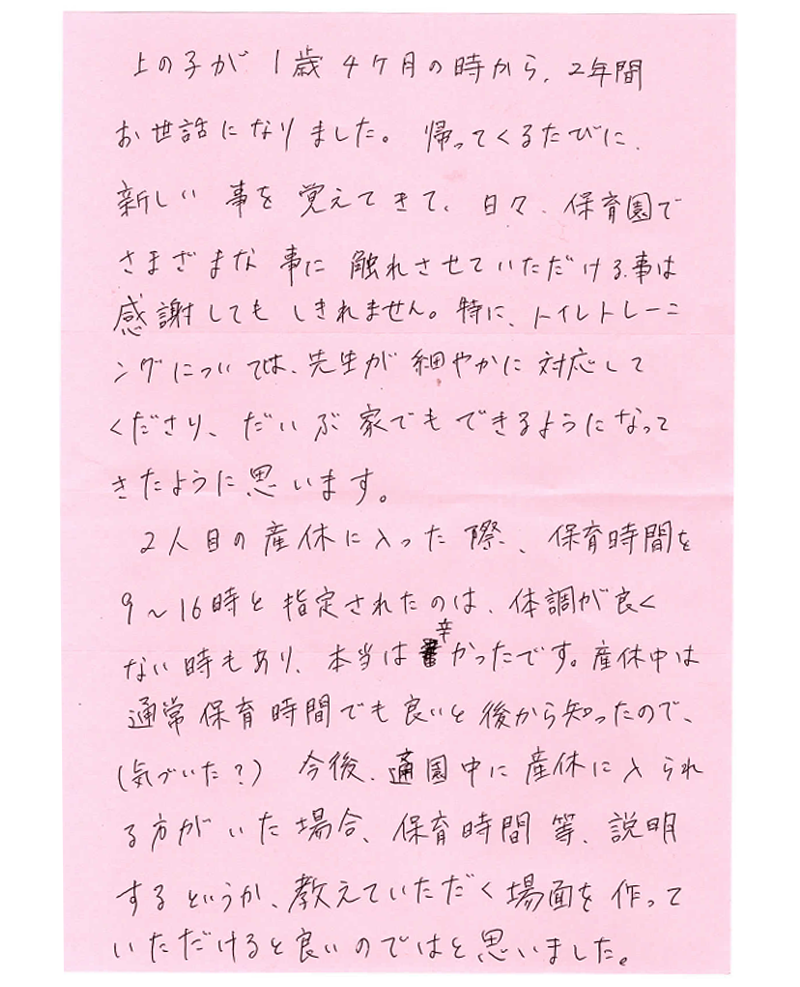 上の子が1歳4ケ月の時から、2年間
お世話になりました。帰ってくるたびに、
新しい事を覚えてきて、日々、保育園で
さまざまな事に触れさせていただける事は
感謝してもしきれません。特に、トイレトレーニ
ングについては、先生が細やかに対応して
くださり、だいぶ家でもできるようになって
きたように思います。
2人目の産休に入った際、保育時間を
9～16時と指定されたのは、体調が良く
ない時もあり、本当は辛かったです。産休中は
通常保育時間でも良いと後から知ったので、
(気づいた?) 今後、通園中に産休に入られ
る方がいた場合、保育時間等、説明
するというか、教えていただく場面を作って
いただけると良いのではと思いました。